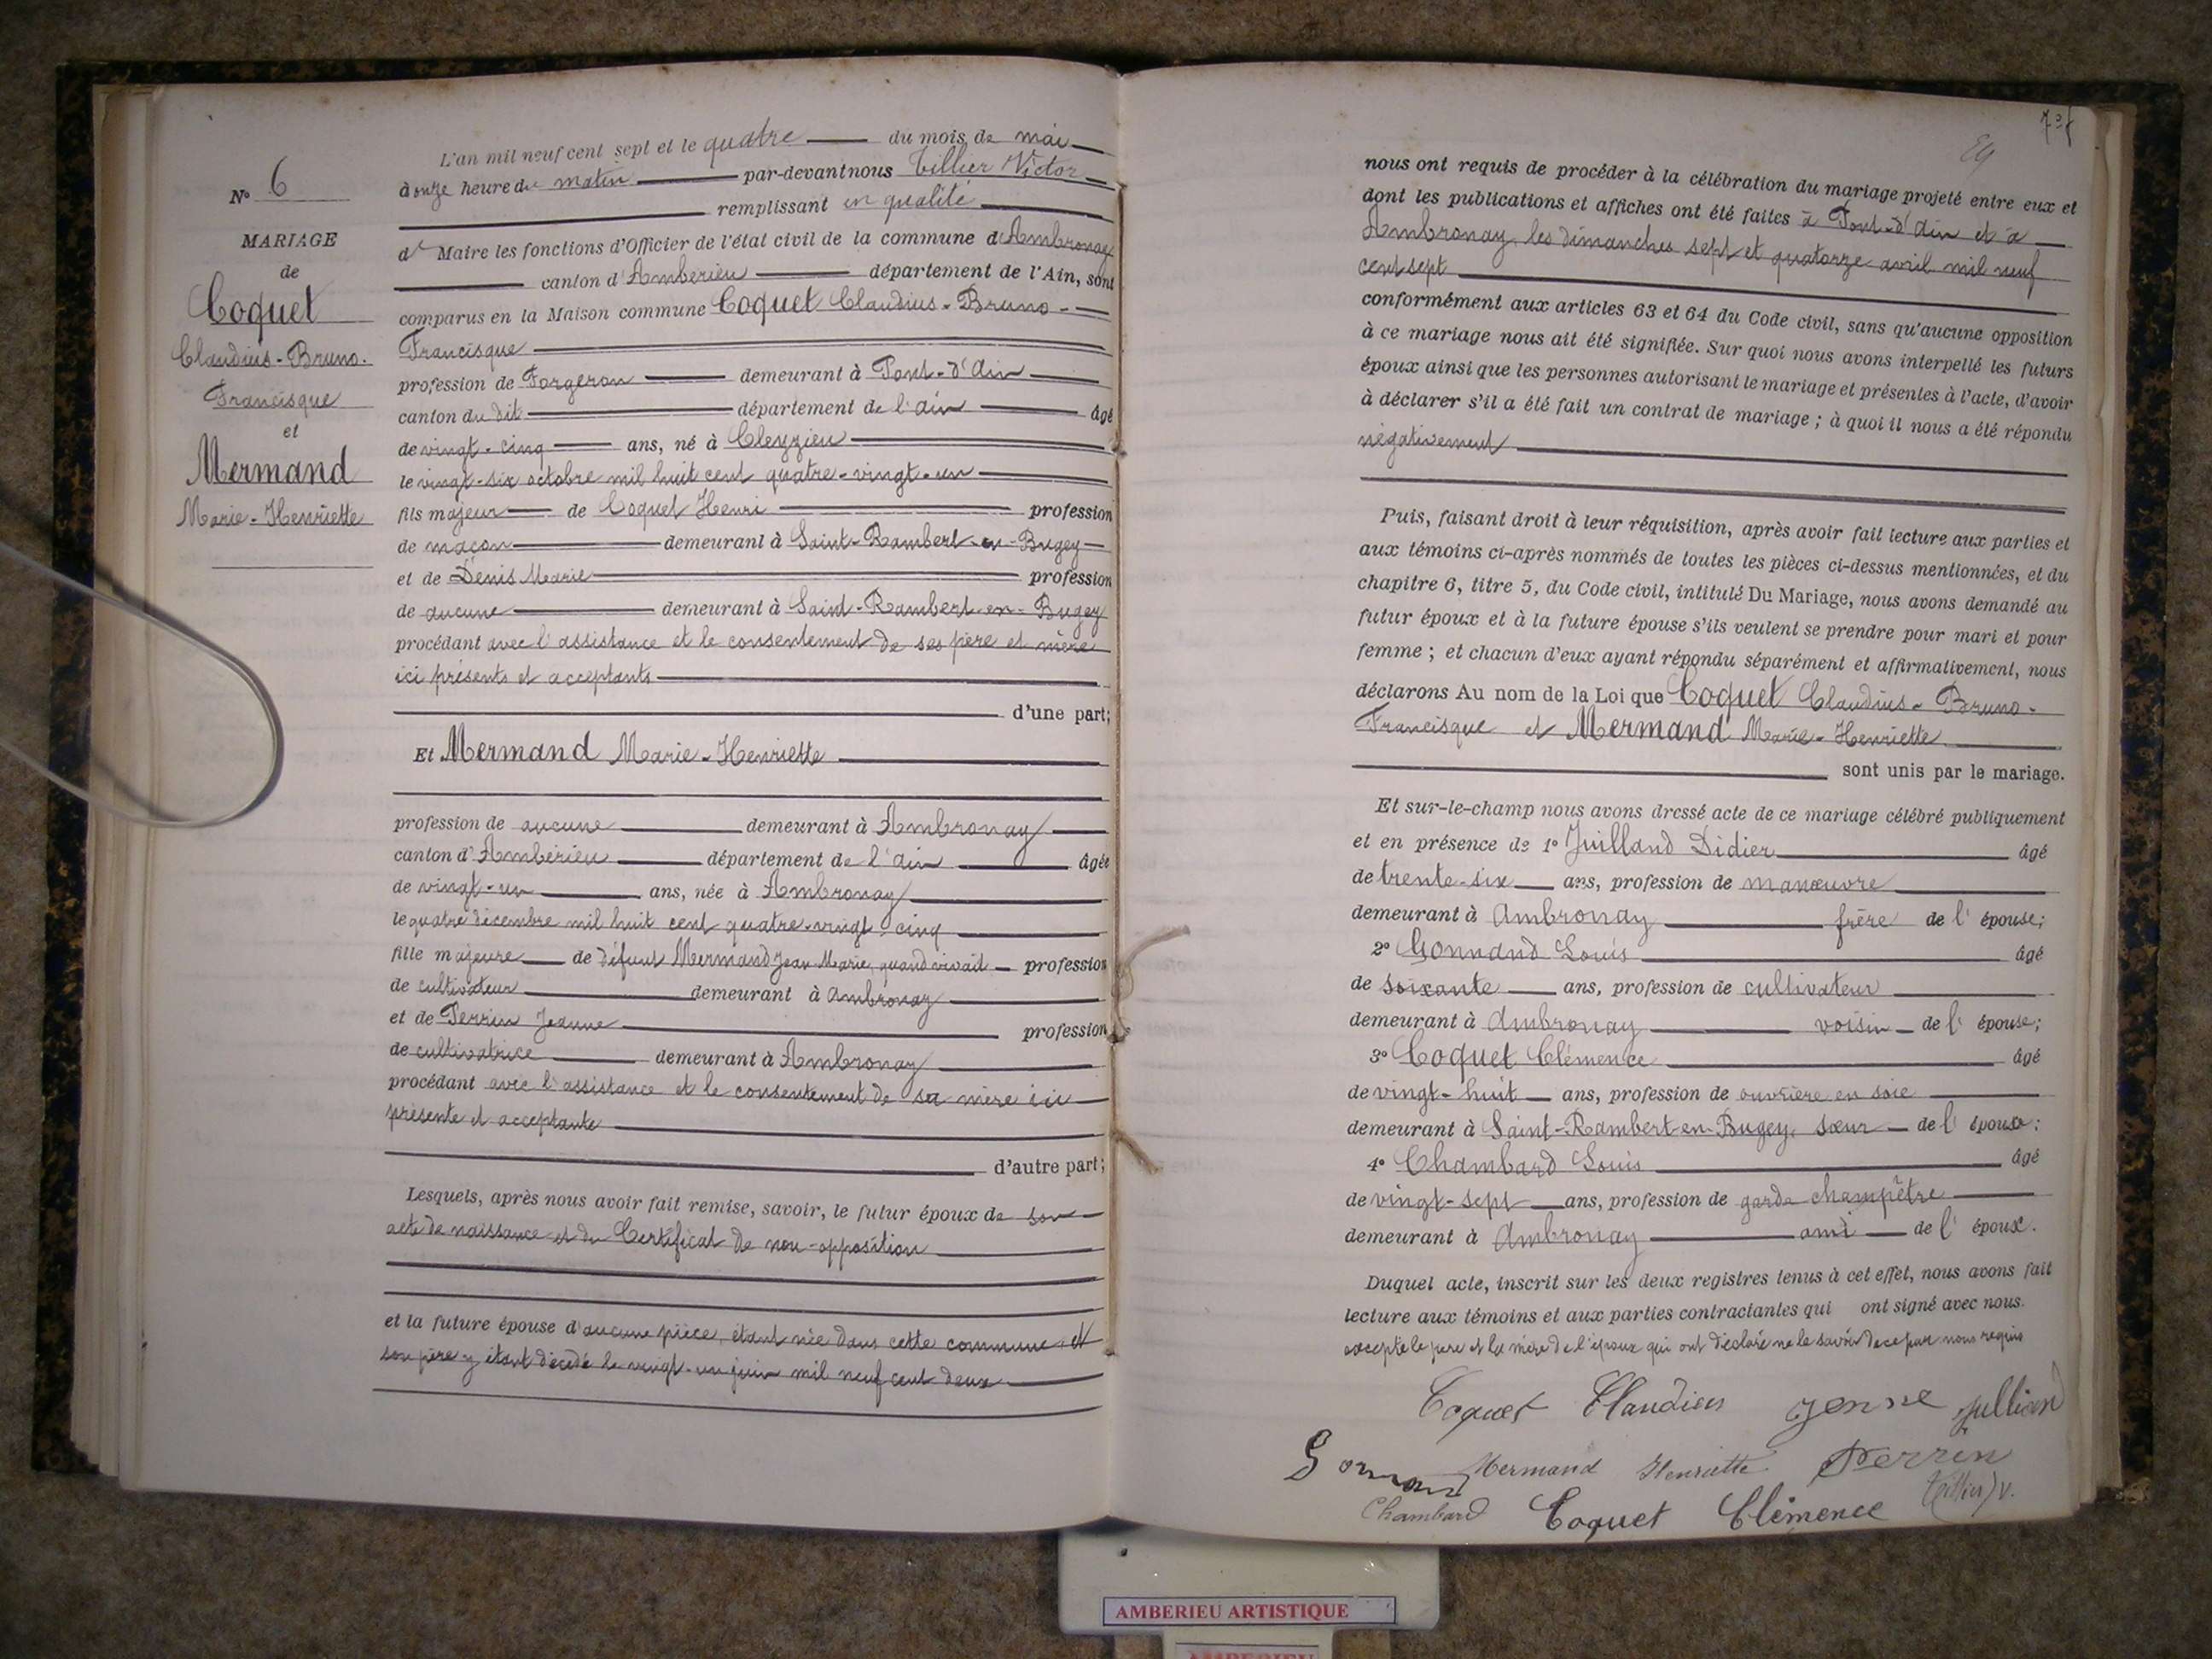 N° 6
MARIAGE
de
Coquet
Claudius-Bruno-
Francisque
et
Mermand
Marie-Henriette
L'an mil neuf cent sept et le quatre du mois de mai
à onze heure du matin par-devant nous Tillier Victor
remplissant en qualité
de Maire les fonctions d'Officier de l'état civil de la commune d'Ambronay
canton d'Ambérieu département de l'Ain, sont
comparus en la Maison commune Coquet Claudius-Bruno-
Francisque
profession de Forgeron demeurant à Pont-d'Ain
canton du dit département de l'ain âgé
de vingt-cinq ans, né à Cleyzieu
le vingt-six octobre mil huit cent quatre-vingt-un
fils majeur de Coquet Henri profession
de maçon demeurant à Saint-Rambert-en-Bugey
et de Denis Marie profession
de aucune demeurant à Saint-Rambert-en-Bugey
procédant avec l'assistance et le consentement de ses père et mère
ici présents et acceptants
d'une part;
Et Mermand Marie-Henriette
profession de aucune demeurant à Ambronay
canton d'Ambérieu département de l'ain âgée
de vingt-un ans, née à Ambronay
le quatre décembre mil huit cent quatre-vingt-cinq
fille majeure de défunt Mermand Jean Marie, quand vivait profession
de cultivateur demeurant à Ambronay
et de Perrin Jeanne profession
de cultivatrice demeurant à Ambronay
procédant avec l'assistance et le consentement de sa mère ici
présente et acceptante
d'autre part;
Lesquels, après nous avoir fait remise, savoir, le futur époux de son
acte de naissance et du Certificat de non-opposition
et la future épouse d'aucune pièce, étant née dans cette commune et
son père y étant décédé le vingt-un juin mil neuf cent deux
89
nous ont requis de procéder à la célébration du mariage projeté entre eux et
dont les publications et affiches ont été faites à Pont-d'Ain et à
Ambronay, les dimanches sept et quatorze avril mil neuf
cent sept
conformément aux articles 63 et 64 du Code civil, sans qu'aucune opposition
à ce mariage nous ait été signifiée. Sur quoi nous avons interpellé les futurs
époux ainsi que les personnes autorisant le mariage et présentes à l'acte, d'avoir
à déclarer s'il a été fait un contrat de mariage ; à quoi il nous a été répondu
négativement
Puis, faisant droit à leur réquisition, après avoir fait lecture aux parties et
aux témoins ci-après nommés de toutes les pièces ci-dessus mentionnées, et du
chapitre 6, titre 5, du Code civil, intitulé Du Mariage, nous avons demandé au
futur époux et à la future épouse s'ils veulent se prendre pour mari et pour
femme ; et chacun d'eux ayant répondu séparément et affirmativement, nous
déclarons Au nom de la Loi que Coquet Claudius-Bruno-
Francisque et Mermand Marie-Henriette
sont unis par le mariage.
Et sur-le-champ nous avons dressé acte de ce mariage célébré publiquement
et en présence de 1° Juilland Didier âgé
de trente-six ans, profession de manœuvre
demeurant à Ambronay frère de l'épouse;
2° Gonnand Louis âgé
de soixante ans, profession de cultivateur
demeurant à Ambronay voisin de l'épouse;
3° Coquet Clémence âgé
de vingt-huit ans, profession de ouvrière en soie
demeurant à Saint-Rambert-en-Bugey, sœur de l'époux;
4° Chambard Louis âgé
de vingt-sept ans, profession de garde champêtre
demeurant à Ambronay ami de l'époux.
Duquel acte, inscrit sur les deux registres tenus à cet effet, nous avons fait
lecture aux témoins et aux parties contractantes qui ont signé avec nous.
excepté le père et la mère de l'époux qui ont déclaré ne le savoir de ce par nous requis
Coquet Claudius Jenne Jullian
Gonnand Mermand Henriette Perrin
Chambard Coquet Clémence Tillier V.
AMBERIEU ARTISTIQUE
AMBERIEU